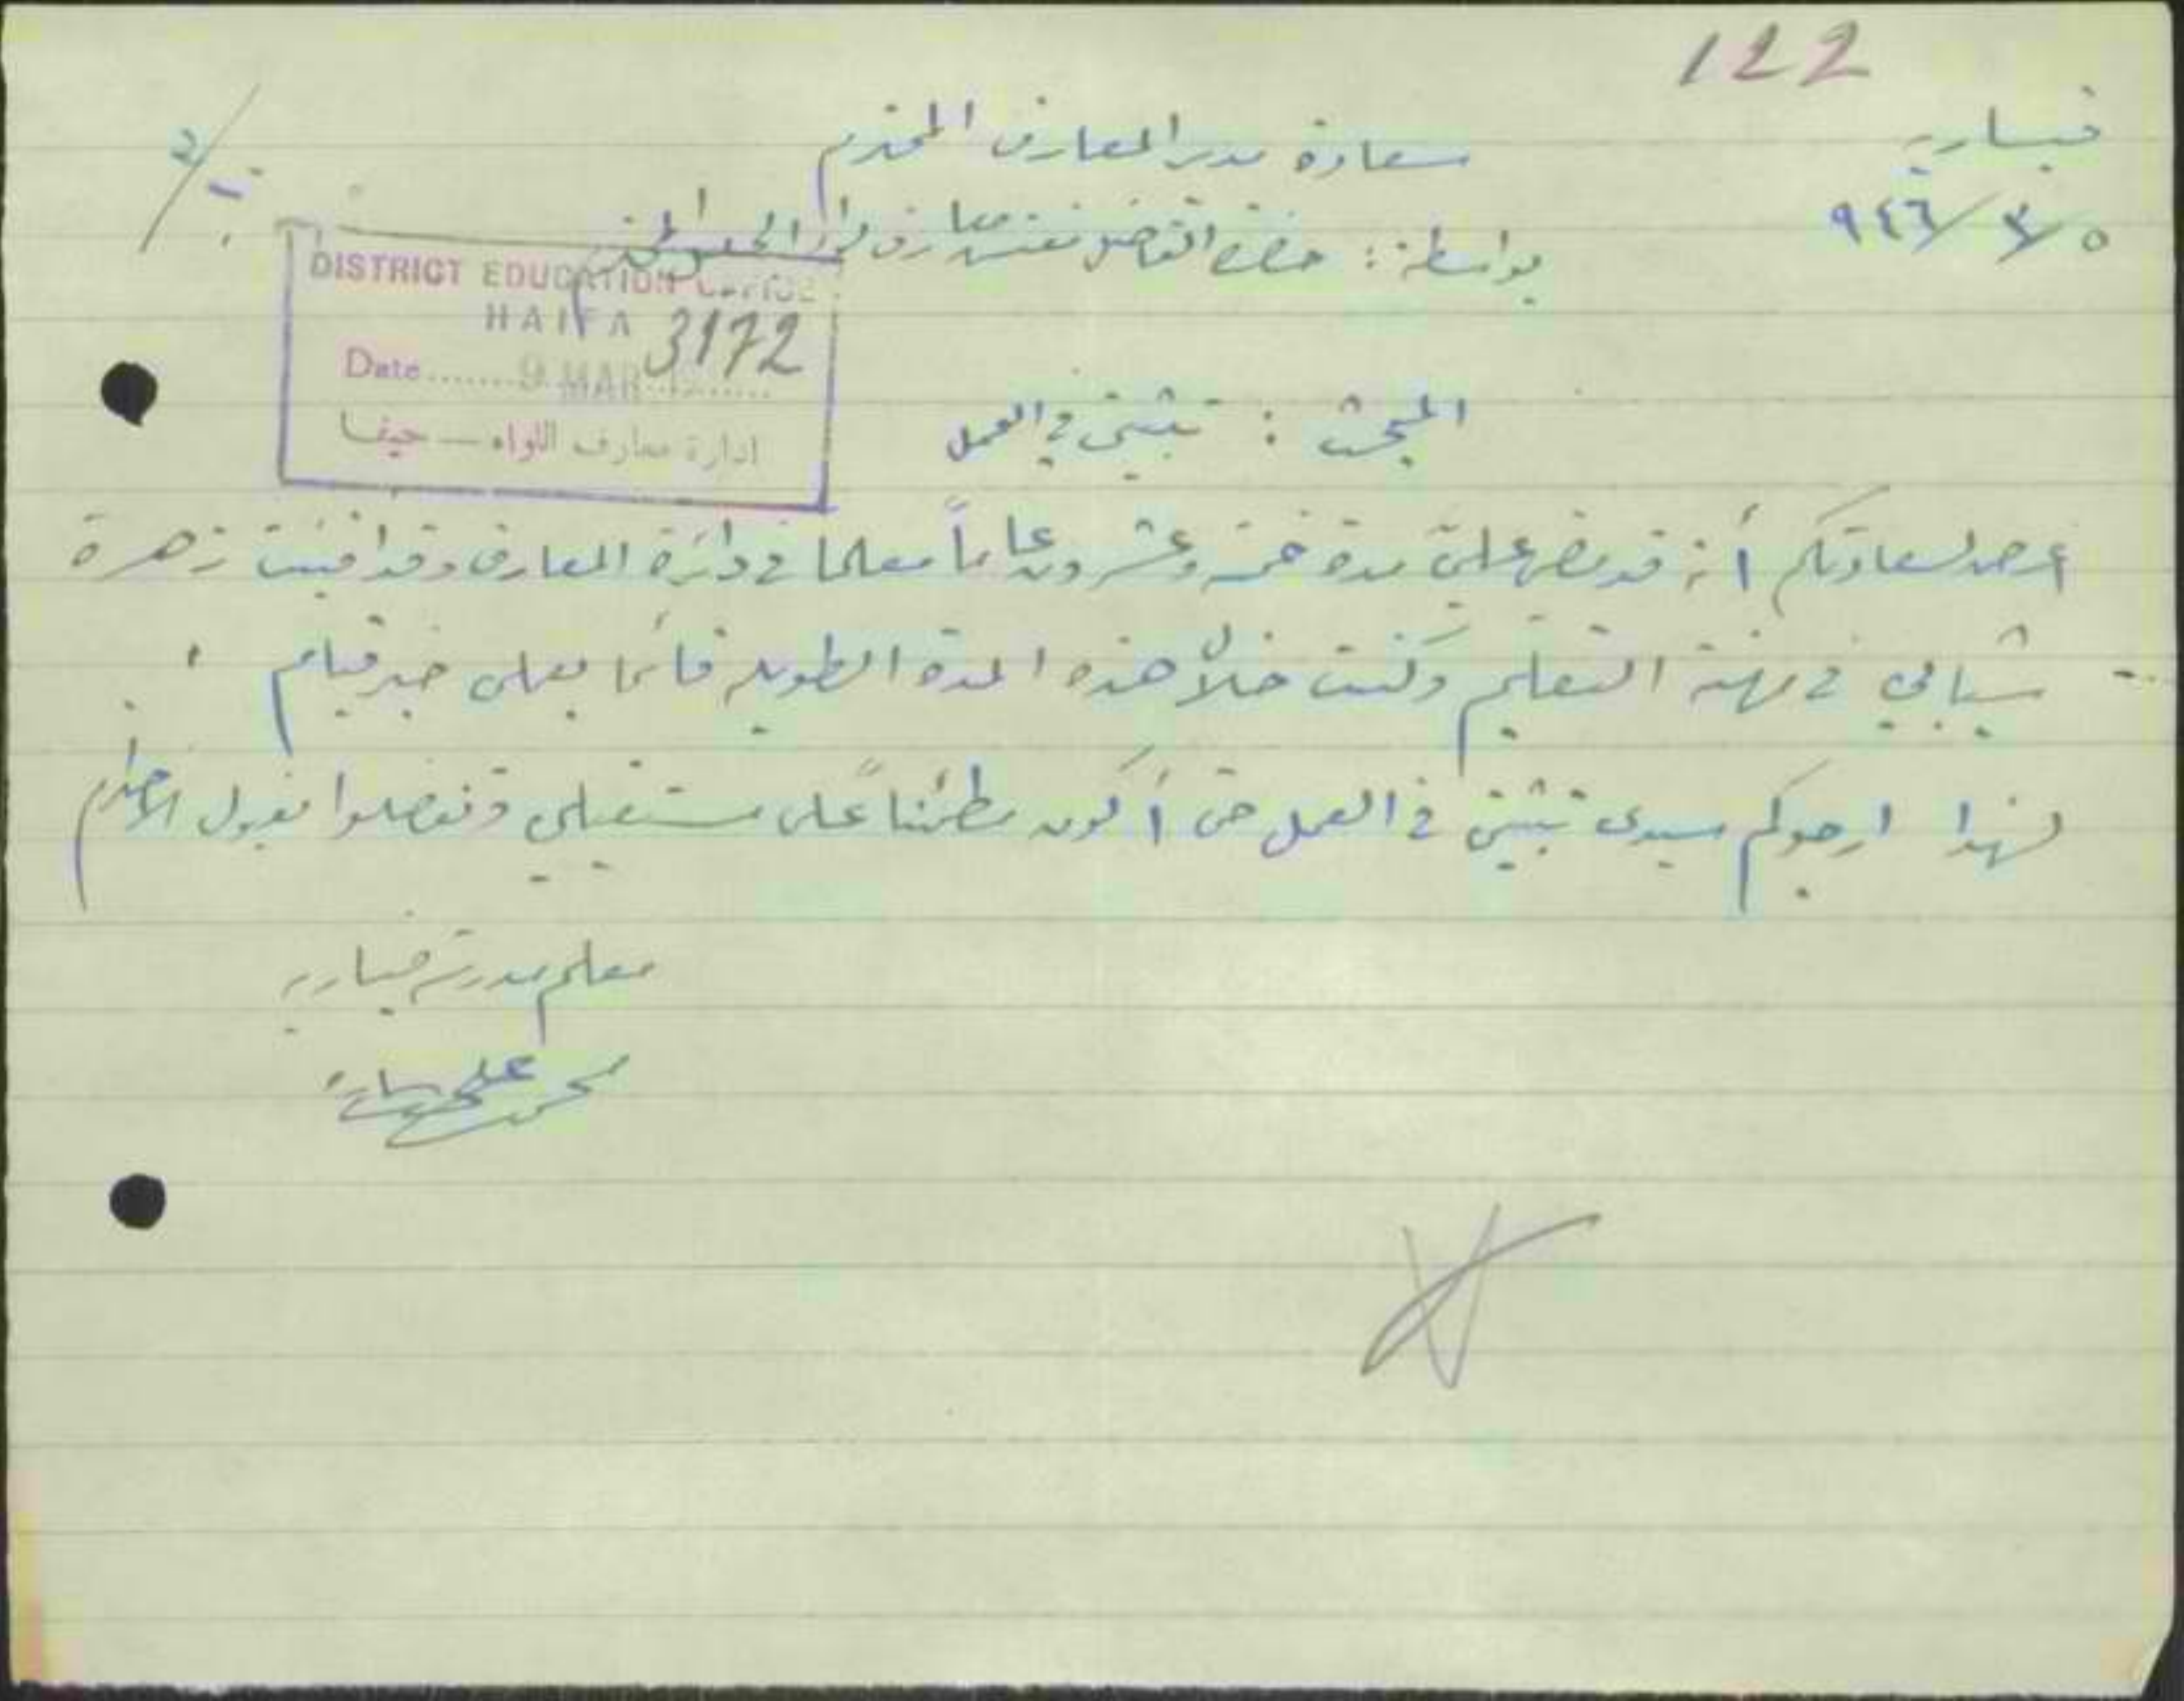 122
قيسارية
٥/٣/٩٤٦
سعادة مدير المعارف المحترم
بواسطة: حضرة الفاضل مفتش معارف لواء الجليل المحترم
DISTRICT EDUCATION OFFICE
HAIFA 3172
Date 9 MAR
ادارة معارف اللواء — حيفا
المبحث: تثبيتي في العمل
اعرض لسعادتكم أنه قد مضى عليّ مدة خمسة وعشرون عاماً معلما في دائرة المعارف وقد افنيت زهرة
شبابي في مهنة التعليم وكنت خلال هذه المدة الطويلة قائما بعملي خير قيام.
لهذا ارجوكم سيدي تثبيتي في العمل حتى أكون مطمئناً على مستقبلي وتفضلوا بقبول الاحترام
معلم مدرسة قيسارية
محمد علي